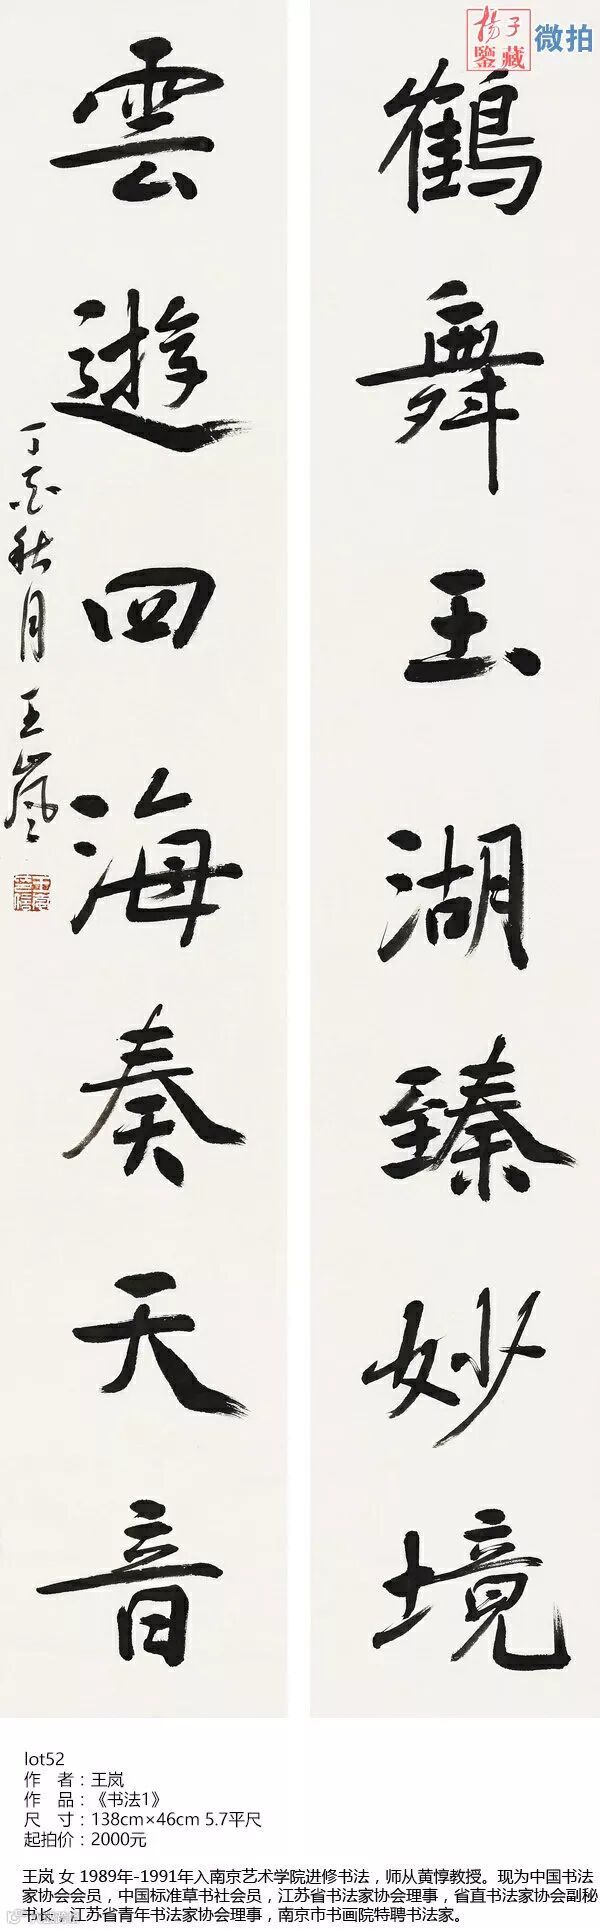 揚子
鑒藏
微拍
鶴舞玉湖臻妙境
雲遊四海奏天音
丁酉秋月王嵐
lot52
作 者：王岚
作 品：《书法1》
尺 寸：138cm×46cm 5.7平尺
起拍价：2000元
王岚 女 1989年-1991年入南京艺术学院进修书法，师从黄惇教授。现为中国书法
家协会会员，中国标准草书社会员，江苏省书法家协会理事，省直书法家协会副秘
书长，江苏省青年书法家协会理事，南京市书画院特聘书法家。